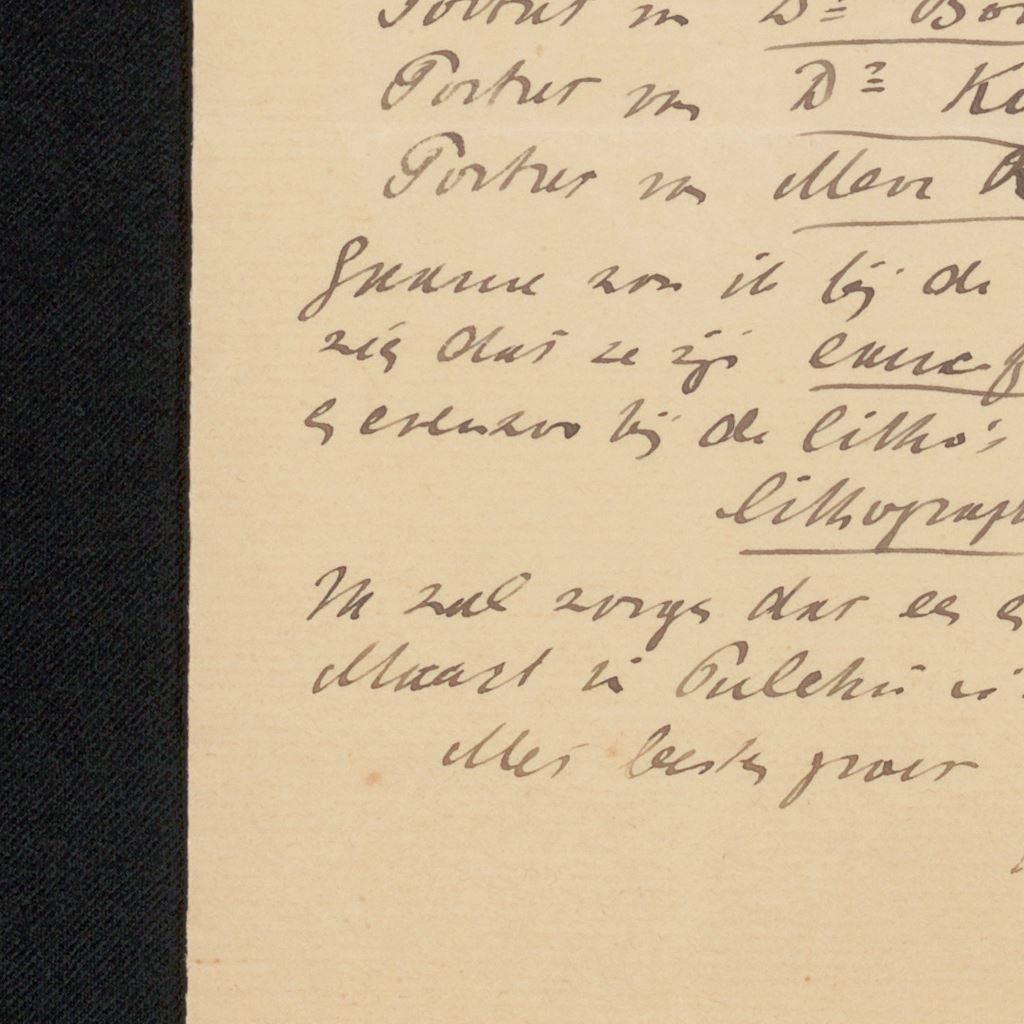 Portret van Dr Bo
Portret van Dr K
Portret van Mevr
Gaarne zou ik bij de
dat ze zijn
en evenzoo bij de litho's
lithograph
Ik zal zorgen dat
Maart in Pulchri is
Met beste groet